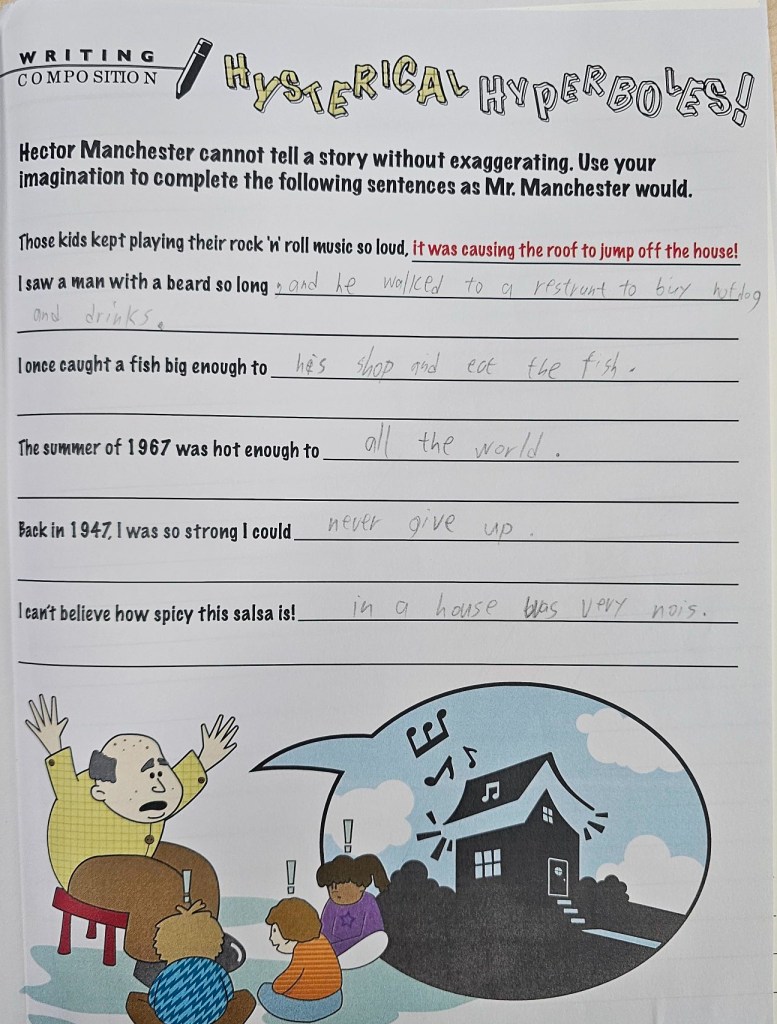 WRITING
COMPOSITION
HYSTERICAL HYPERBOLES!
Hector Manchester cannot tell a story without exaggerating. Use your
imagination to complete the following sentences as Mr. Manchester would.
Those kids kept playing their rock 'n' roll music so loud, it was causing the roof to jump off the house!
I saw a man with a beard so long , and he walked to a restrunt to buy hotdog
and drinks.
I once caught a fish big enough to his shop and eat the fish.
The summer of 1967 was hot enough to all the world.
Back in 1947, I was so strong I could never give up.
I can't believe how spicy this salsa is! in a house was very nois.
! ! !